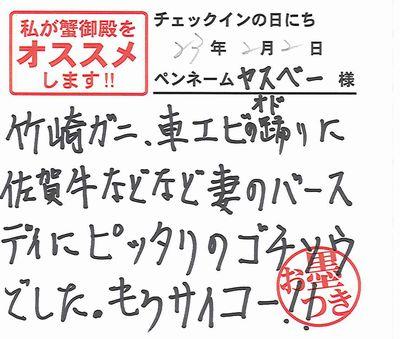 私が蟹御殿を
オススメ
します!!
チェックインの日にち
23年2月2日
ペンネーム ヤスベー 様
竹崎ガニ、車エビの踊りに
オド
佐賀牛などなど妻のバース
ディにピッタリのゴチソウ
でした。もうサイコー!!
お墨つき